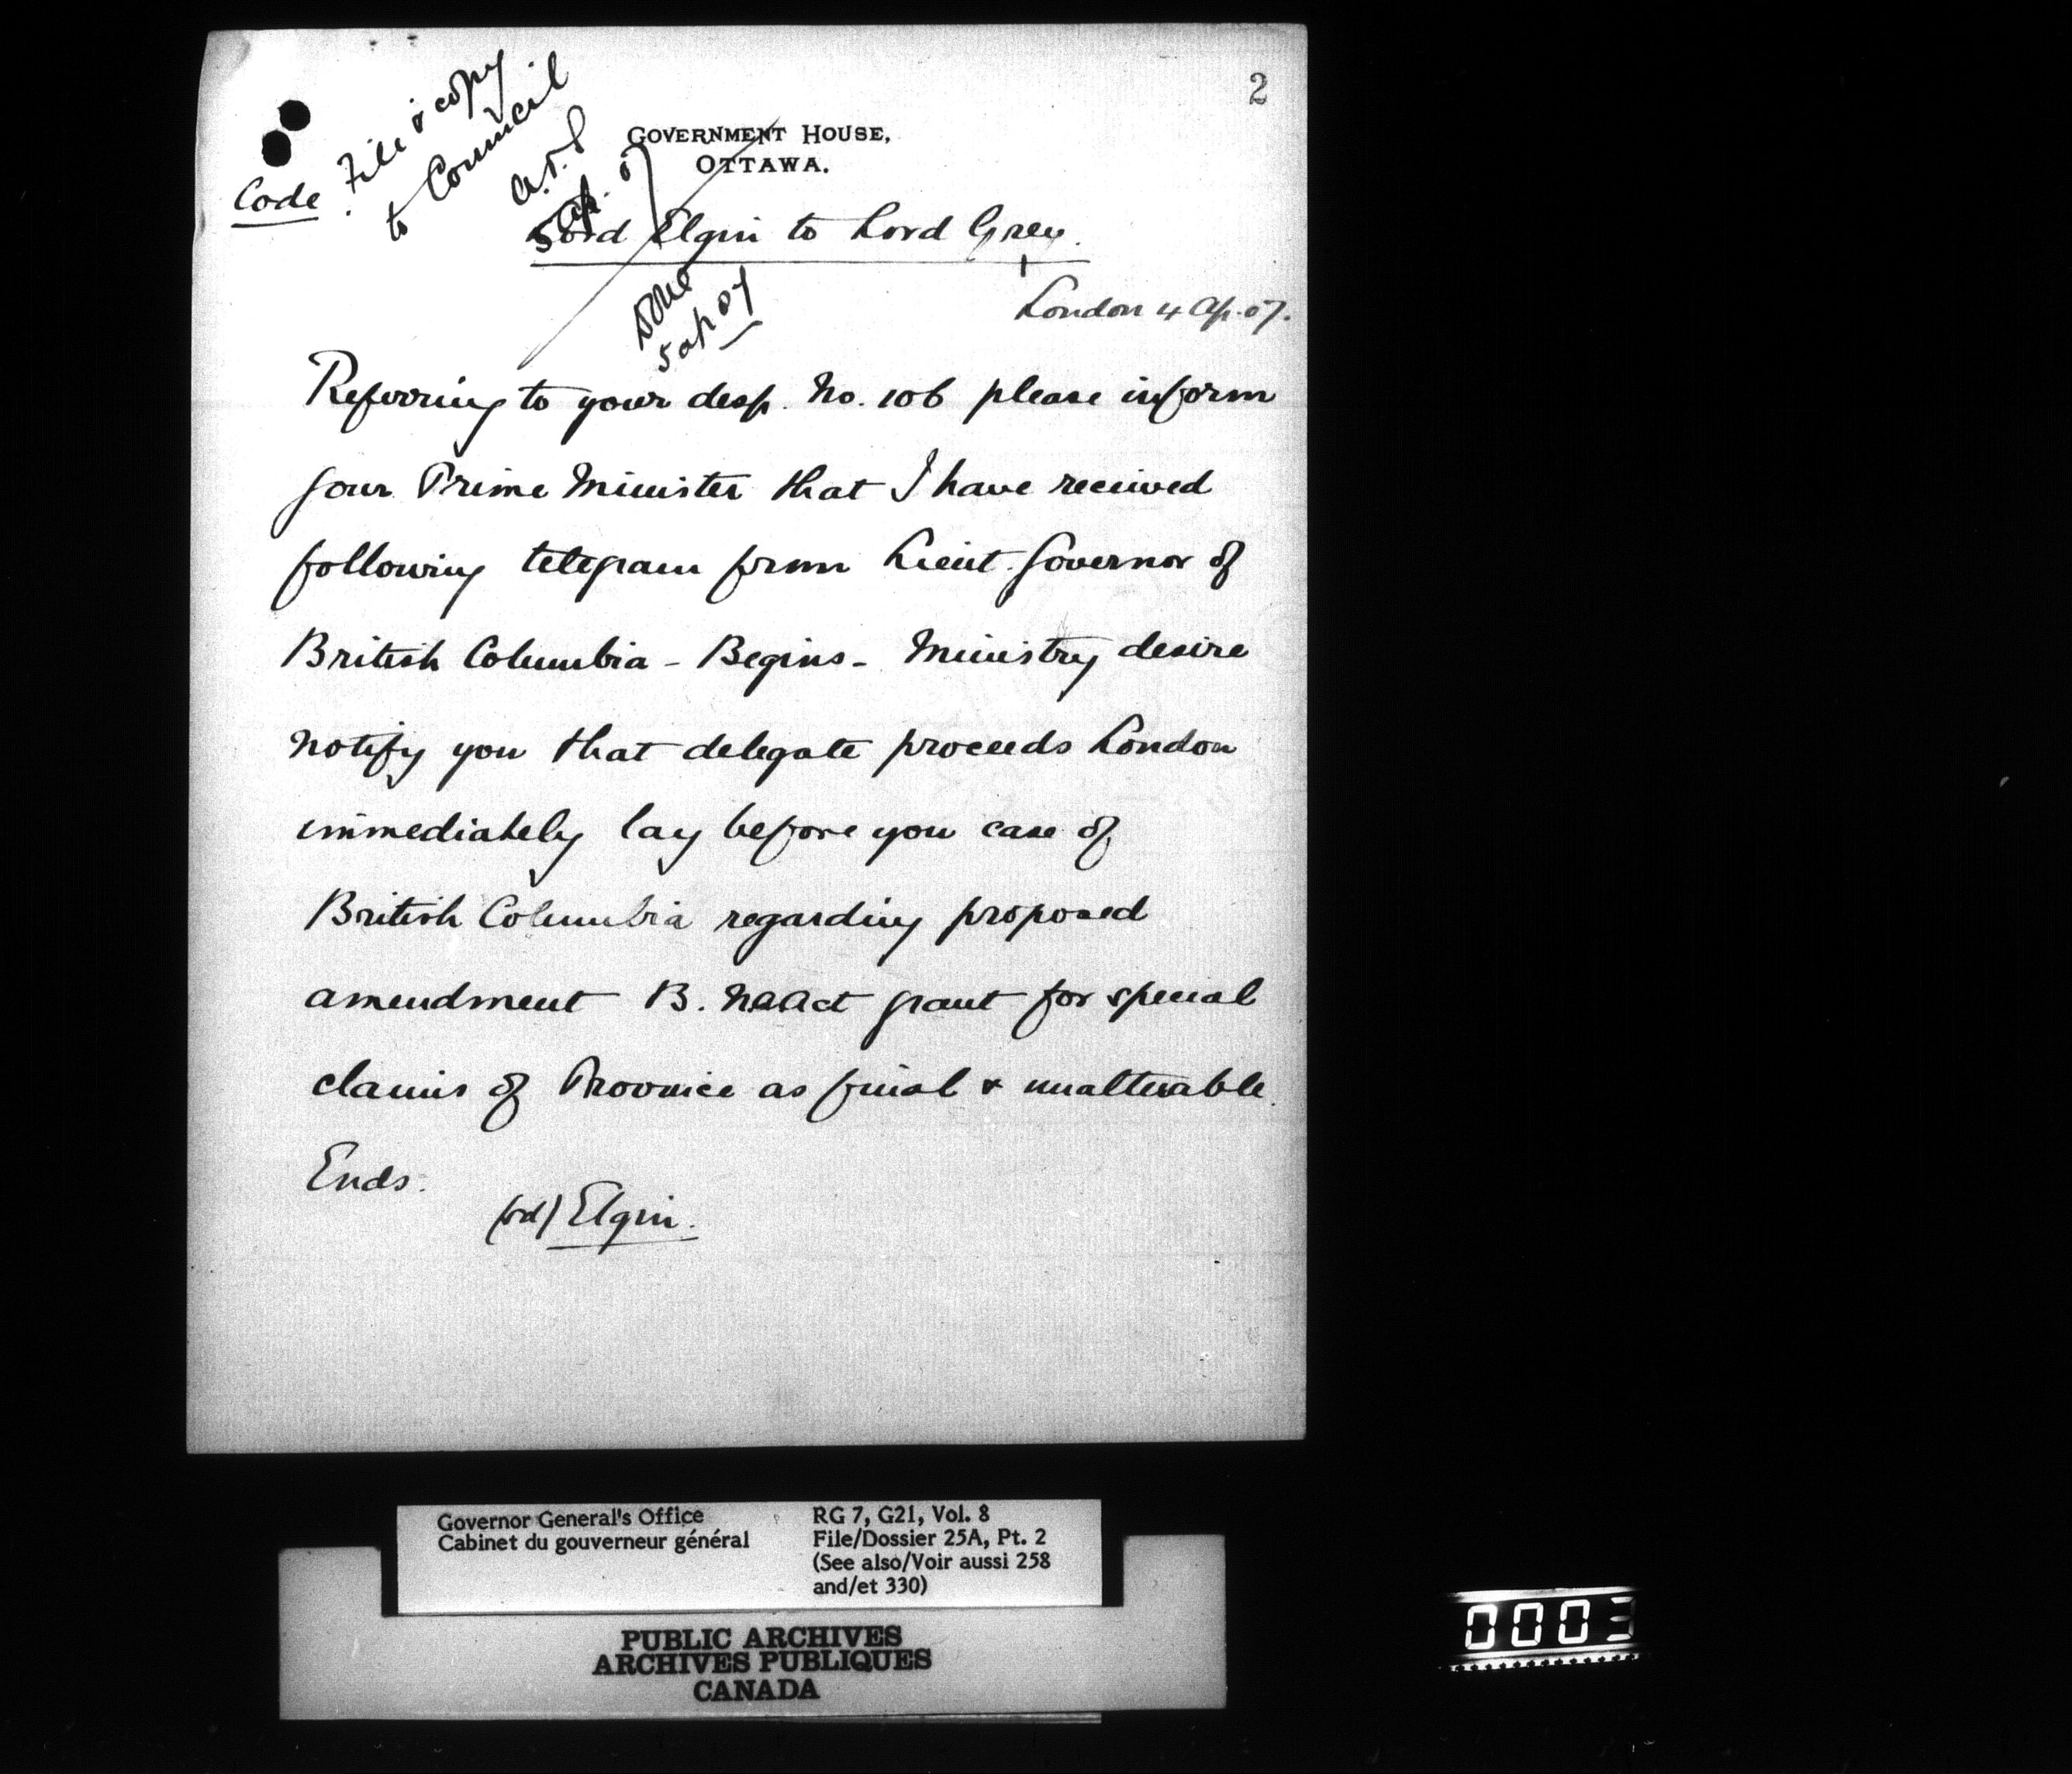 2
Code
File & copy
to Council
5 Ap. 07
GOVERNMENT HOUSE,
OTTAWA.
Lord Elgin to Lord Grey.
Done
5 ap 07
London 4 Ap. 07.
Referring to your desp. No. 106 please inform
your Prime Minister that I have received
following telegram from Lieut. Governor of
British Columbia - Begins - Ministry desire
notify you that delegate proceeds London
immediately lay before you case of
British Columbia regarding proposed
amendment B. N A Act grant for special
claims of Province as final & unalterable.
Ends.
(sd) Elgin.
Governor General's Office
Cabinet du gouverneur général
RG 7, G21, Vol. 8
File/Dossier 25A, Pt. 2
(See also/Voir aussi 258
and/et 330)
PUBLIC ARCHIVES
ARCHIVES PUBLIQUES
CANADA
0003